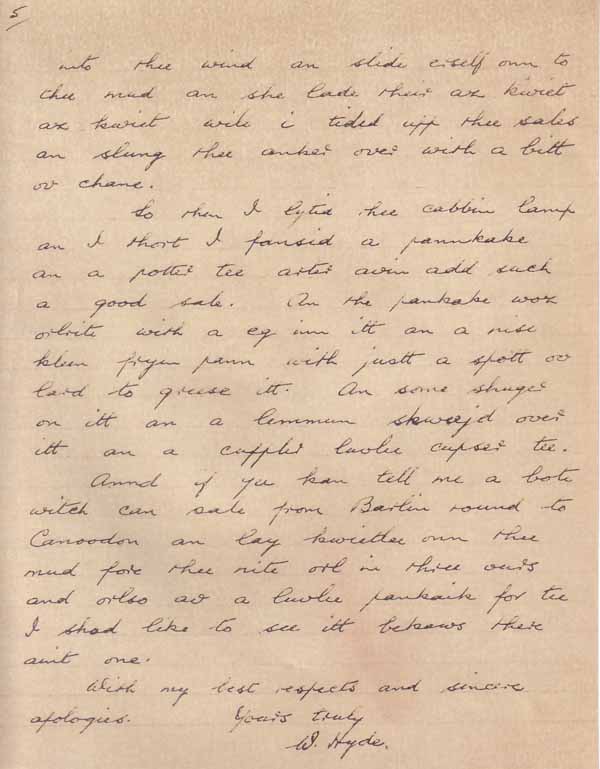 5/
into thee wind an slide eiself onn to
thee mud an she lade their az kwiet
az kwiet wile i tided upp thee sales
an slung thee anker over with a bitt
ov chane.
So then I lytid thee cabbin lamp
an I thort I fansid a pannkake
an a potter tee arter avin add such
a good sale. An the pankake woz
orlrite with a eg inn itt an a nise
kleen fryen pann with justt a spott ov
lard to greese itt. An some shuger
on itt an a lemmun skweejd over
itt an a cuppler luvlie cupser tee.
Annd if yue kan tell me a bote
witch can sale from Barlin round to
Canoodon an lay kwietlee onn thee
mud fore thee nite orl in three ours
and orlso av a luvlie pankaik for tee
I shad like to see itt bekaws there
aint one.
With my best respects and sincere
apologies. Yours truly
W. Hyde.